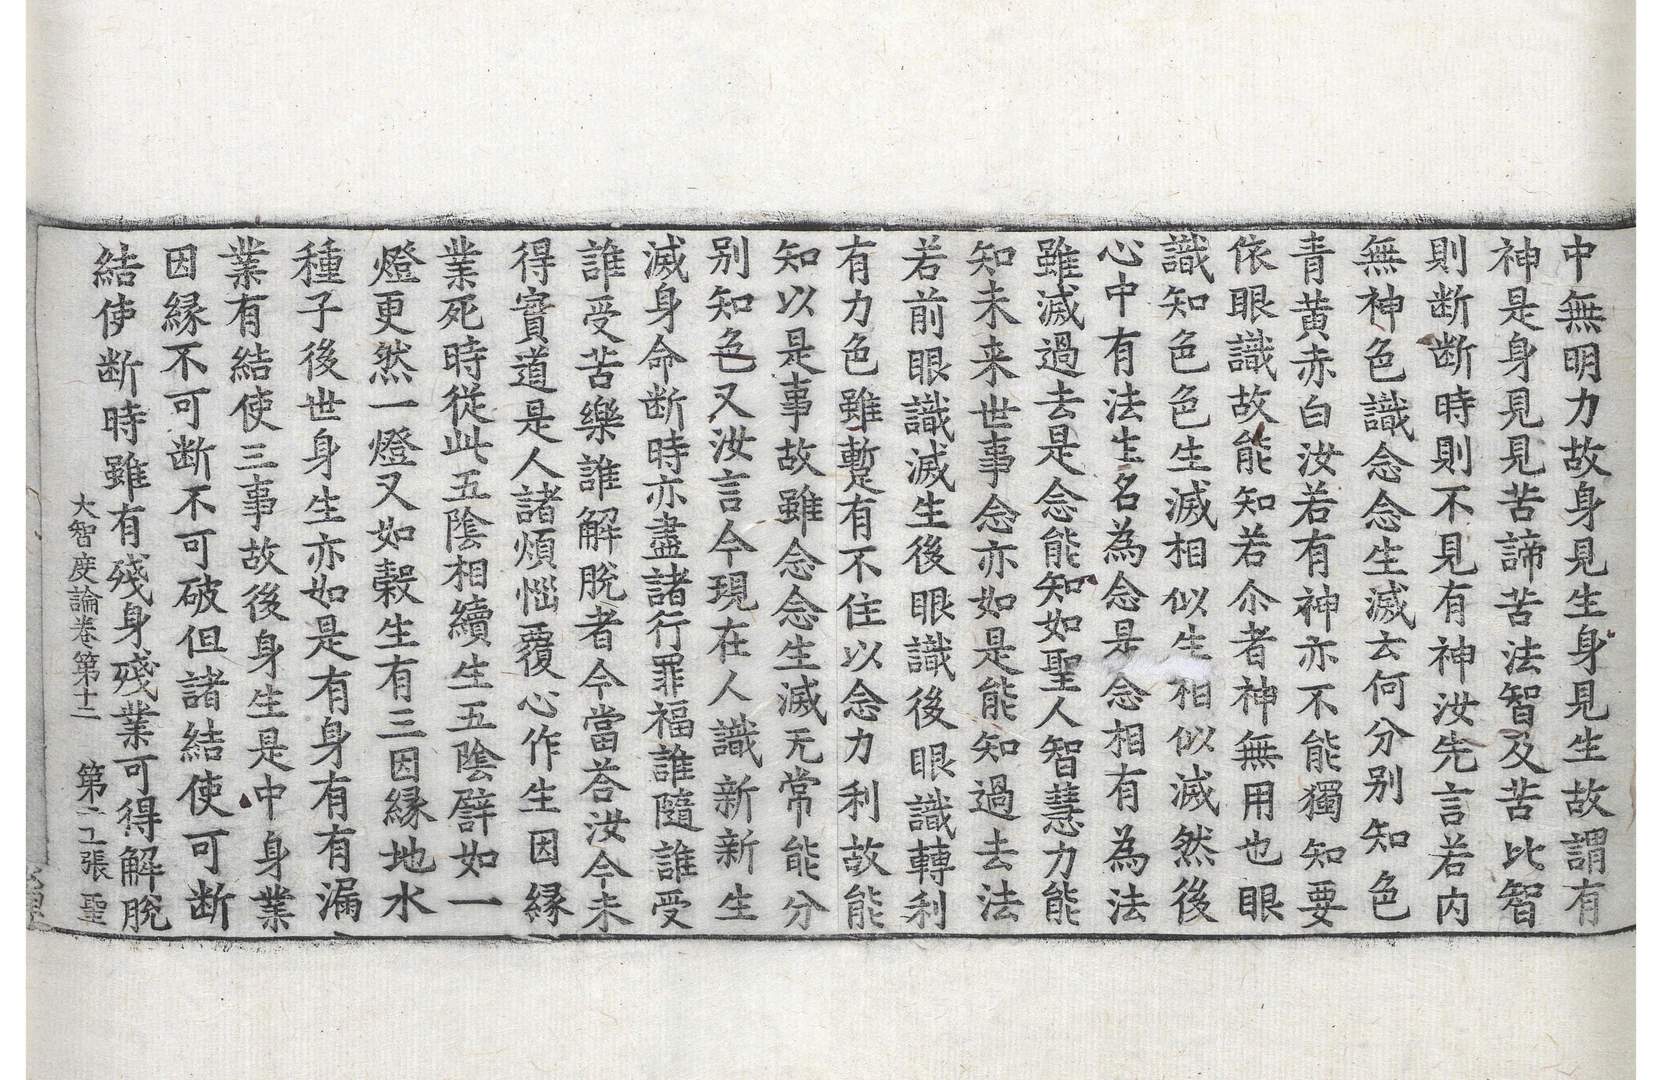 中無明力故身見生身見生故謂有
神是身見見苦諦苦法智及苦比智
則断断時則不見有神汝先言若内
無神色識念念生滅云何分別知色
青黄赤白汝若有神亦不能獨知要
依眼識故能知若尒者神無用也眼
識知色色生滅相似生相似滅然後
心中有法生名為念是念相有為法
雖滅過去是念能知如聖人智慧力能
知未来世事念亦如是能知過去法
若前眼識滅生後眼識後眼識轉利
有力色雖暫有不住以念力利故能
知以是事故雖念念生滅无常能分
別知色又汝言今現在人識新新生
滅身命断時亦盡諸行罪福誰隨誰受
誰受苦樂誰解脫者今當荅汝今未
得實道是人諸煩惱覆心作生因縁
業死時從此五陰相續生五陰譬如一
燈更然一燈又如榖生有三因縁地水
種子後世身生亦如是有身有有漏
業有結使三事故後身生是中身業
因縁不可断不可破但諸結使可断
結使断時雖有殘身殘業可得解脫
大智度論卷第十二 第二工張 聖